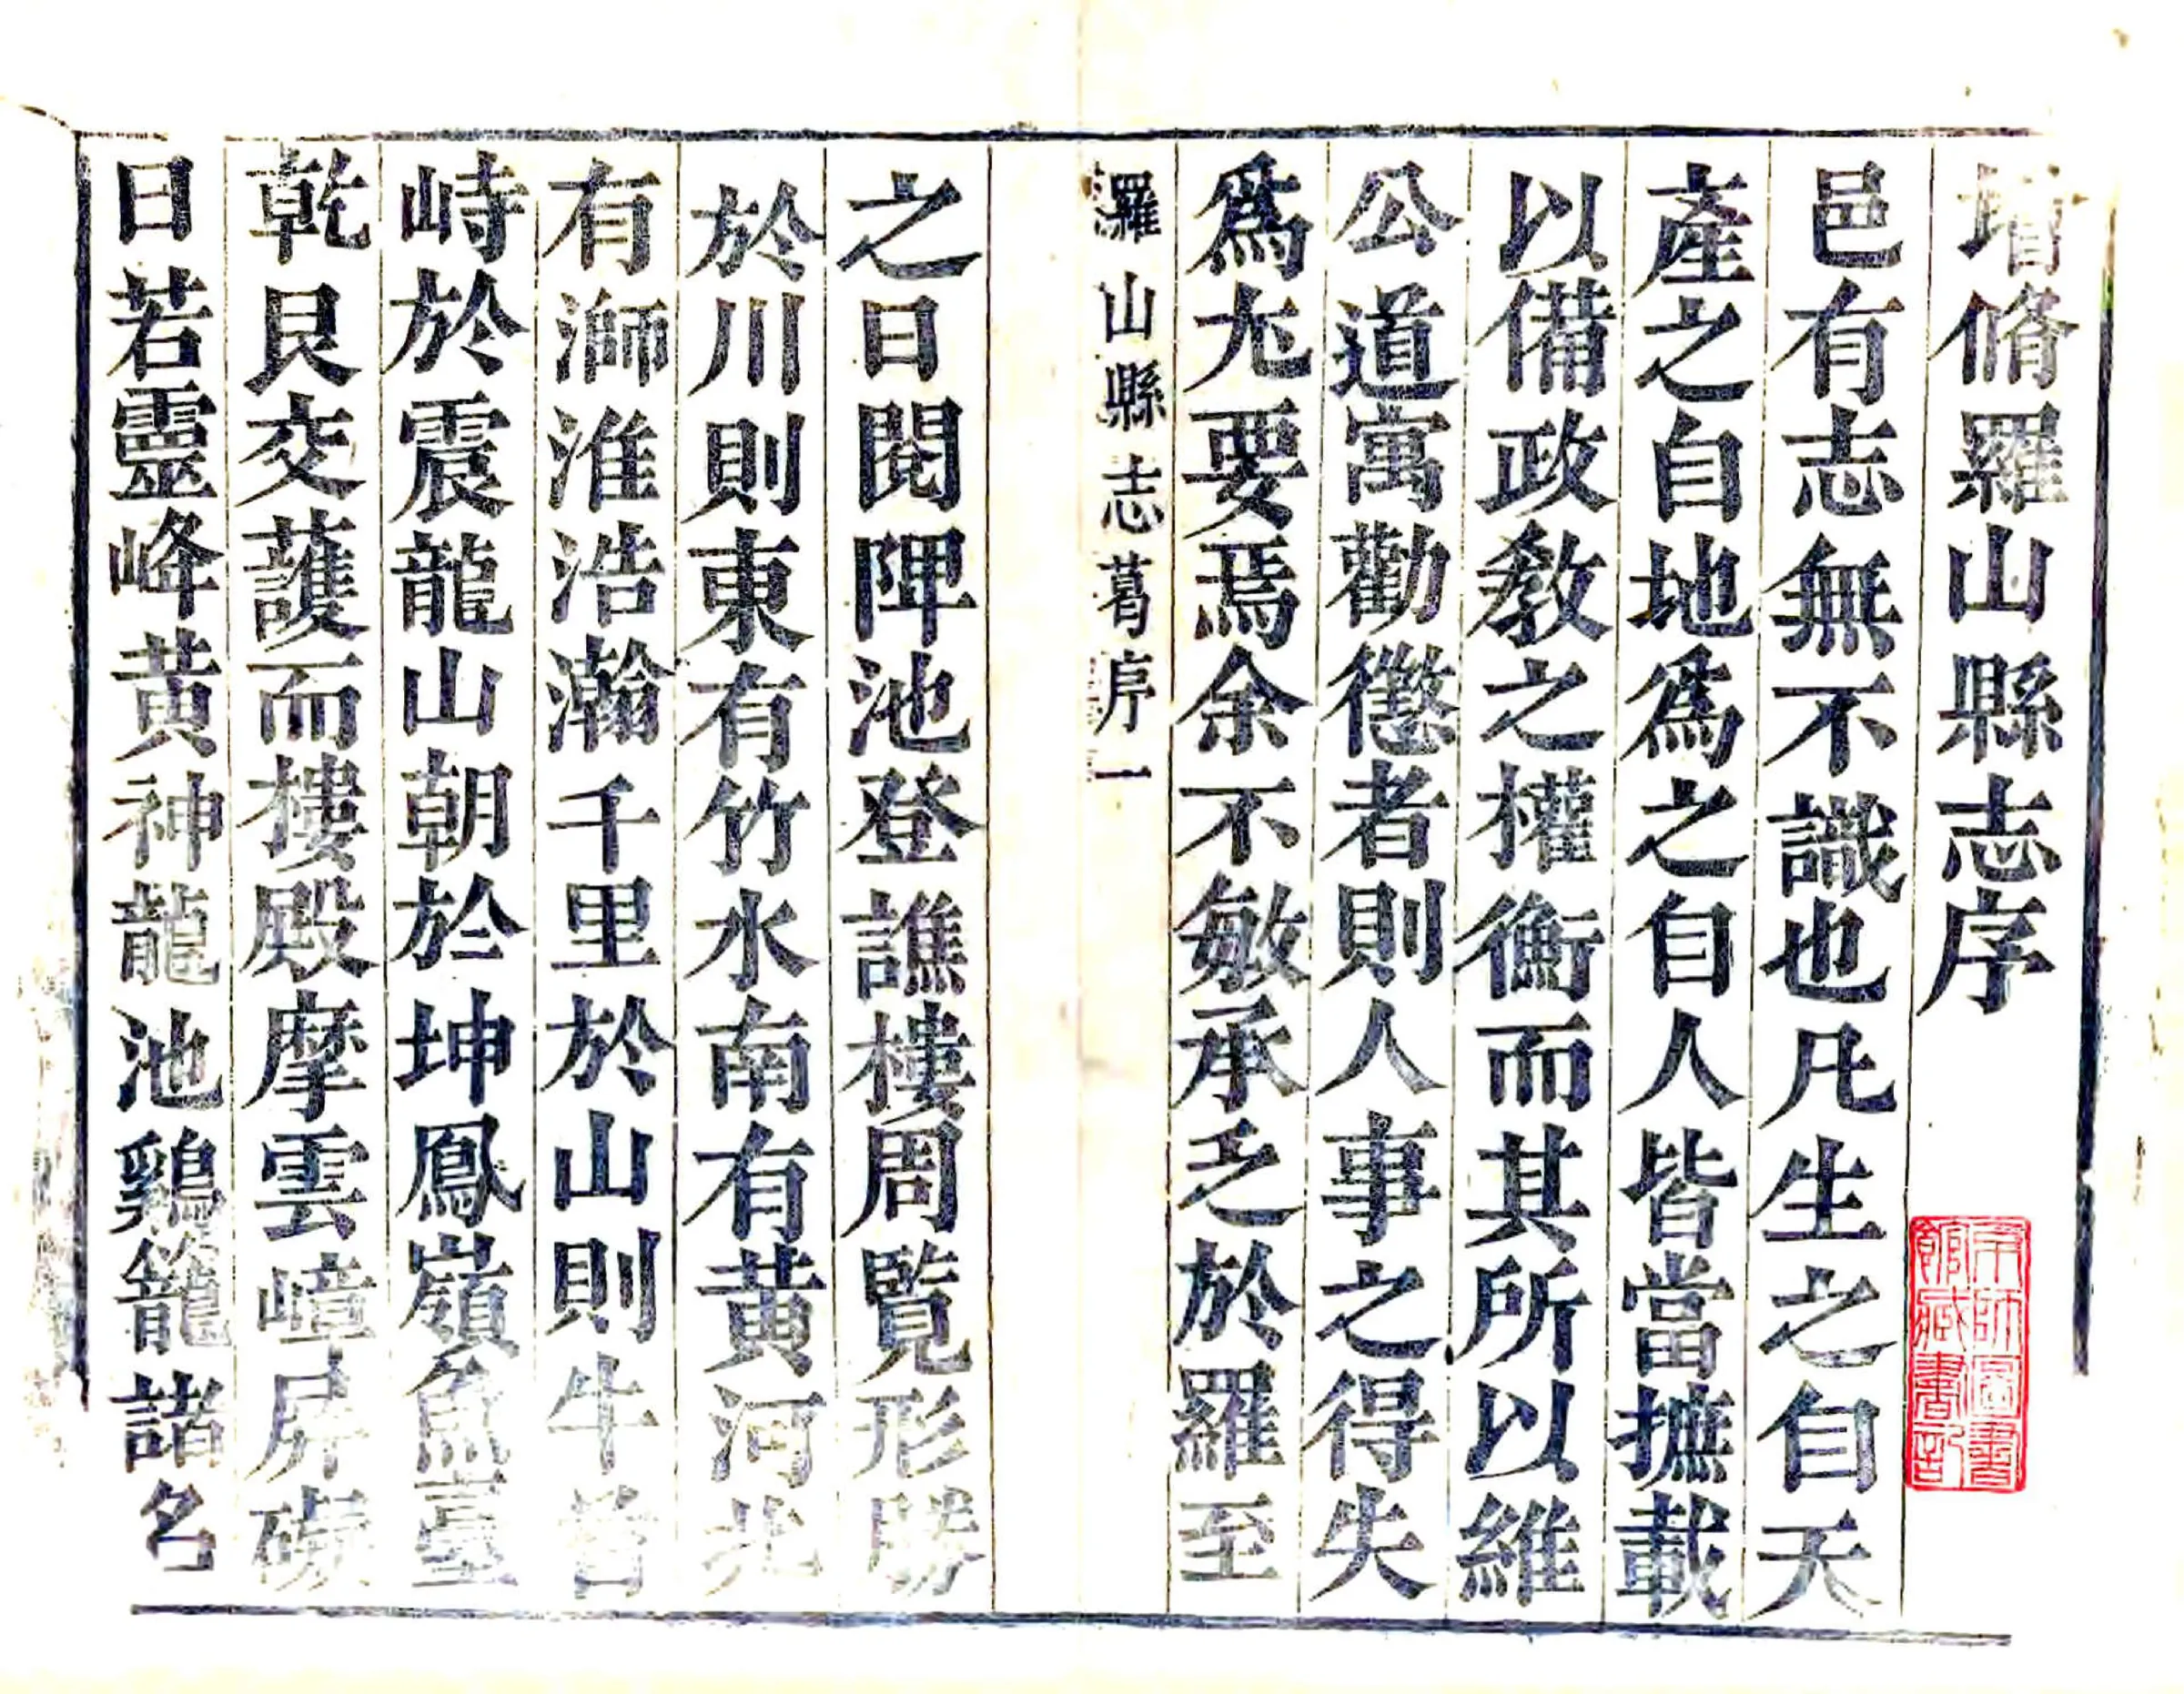 增脩羅山縣志序
邑有志無不識也凡生之自天
產之自地爲之自人皆當摭載
以備政教之權衡而其所以維
公道寓勸懲者則人事之得失
爲尤要焉余不敏承乏於羅至
羅山縣志 葛序 一
之日閱陴池登譙樓周覧形勝
於川則東有竹水南有黃河北
有溮淮浩瀚千里於山則牛首
峙於震龍山朝於坤鳳嶺魚臺
乾艮交護而樓殿摩雲嶂屏
日若靈峰黄神龍池鷄籠諸名
京師圖書
館藏書記